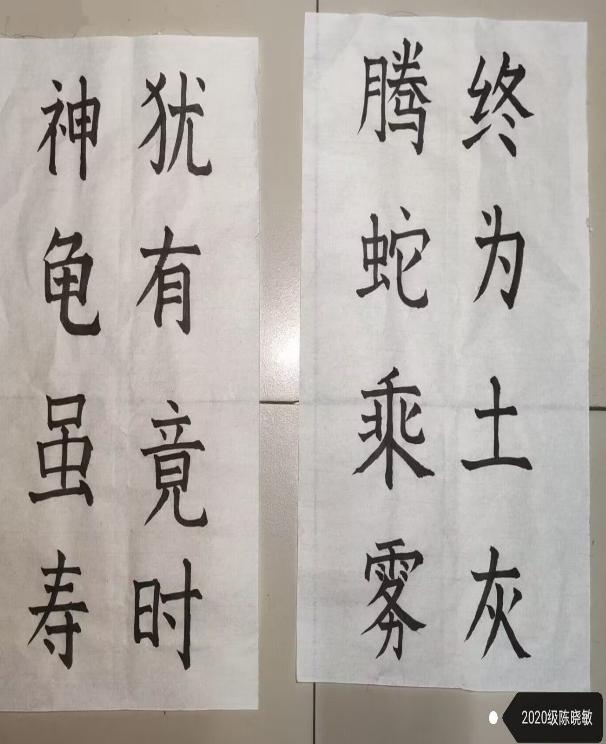 神龟虽寿
犹有竟时
腾蛇乘雾
终为土灰
2020级陈晓敏